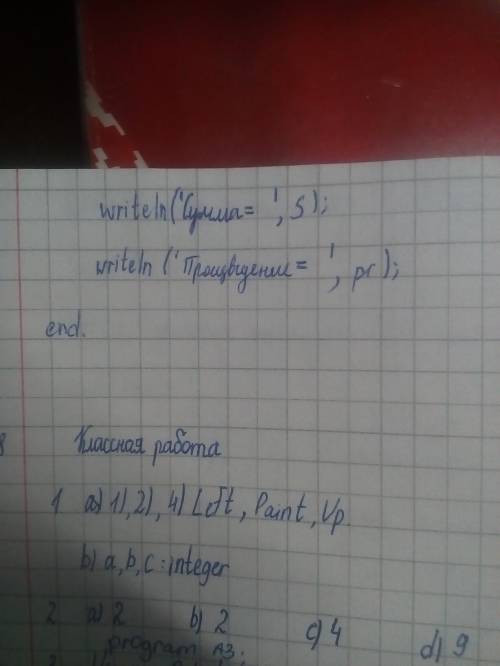 writeln('Сумма= ', S);
writeln ('Произведение = ', pr);
end.
8
Классная работа
1 a) 1), 2), 4) Left, Paint, Up
b) a, b, c : integer
2 a) 2 b) 2 c) 4 d) 9
program A3;